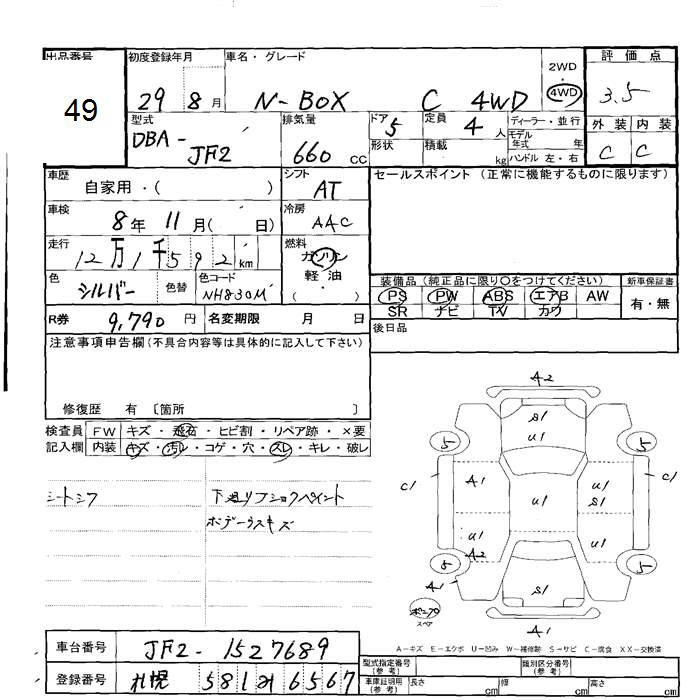 出品番号
49
初度登録年月
29 8 月
車名・グレード
N-BOX C 4WD
2WD
・
4WD
評価点
3.5
外装 内装
C C
型式
DBA-
JF2
排気量
660 CC
ドア 5
形状
定員 4 人
積載 kg
ディーラー・並行
モデル年式 年
ハンドル 左・右
車歴
自家用・( )
シフト
AT
セールスポイント (正常に機能するものに限ります)
車検
8年 11月( 日)
冷房
AAC
走行
12万1千592km
燃料
ガソリン
軽油
( )
色
シルバー
色替
色コード
NH830M
装備品 (純正品に限り○をつけてください)
PS PW ABS エアB AW
SR ナビ TV カワ
新車保証書
有・無
R券 9,790 円
名変期限 月 日
後日品
注意事項申告欄(不具合内容等は具体的に記入して下さい)
修復歴 有 〔箇所 〕
検査員記入欄
FW キズ・飛石・ヒビ割・リペア跡・×要
内装 キズ・汚レ・コゲ・穴・スレ・キレ・破レ
シートシワ
下廻リフショクペイント
ボデーウスキズ
A2
S1
U1
5 5
C1 A1 U1 U1 S1 C1
U1 A2 U1
5 5
A1
S1
A1
スペア
A-キズ E-エクボ U-凹み W-補修跡 S-サビ C-腐食 XX-交換済
車台番号 JF2-1527689
登録番号 札幌 581 み 6567
型式指定番号
(参考)
類別区分番号
(参考)
車庫証明用
(参考)
長さ cm 幅 cm 高さ cm